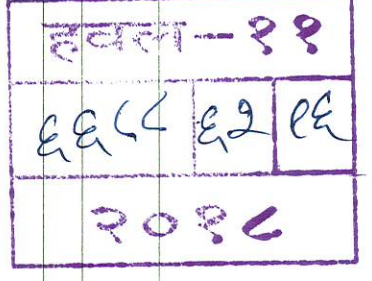 हवल-११
६६८८ ६२ १६
२०१८